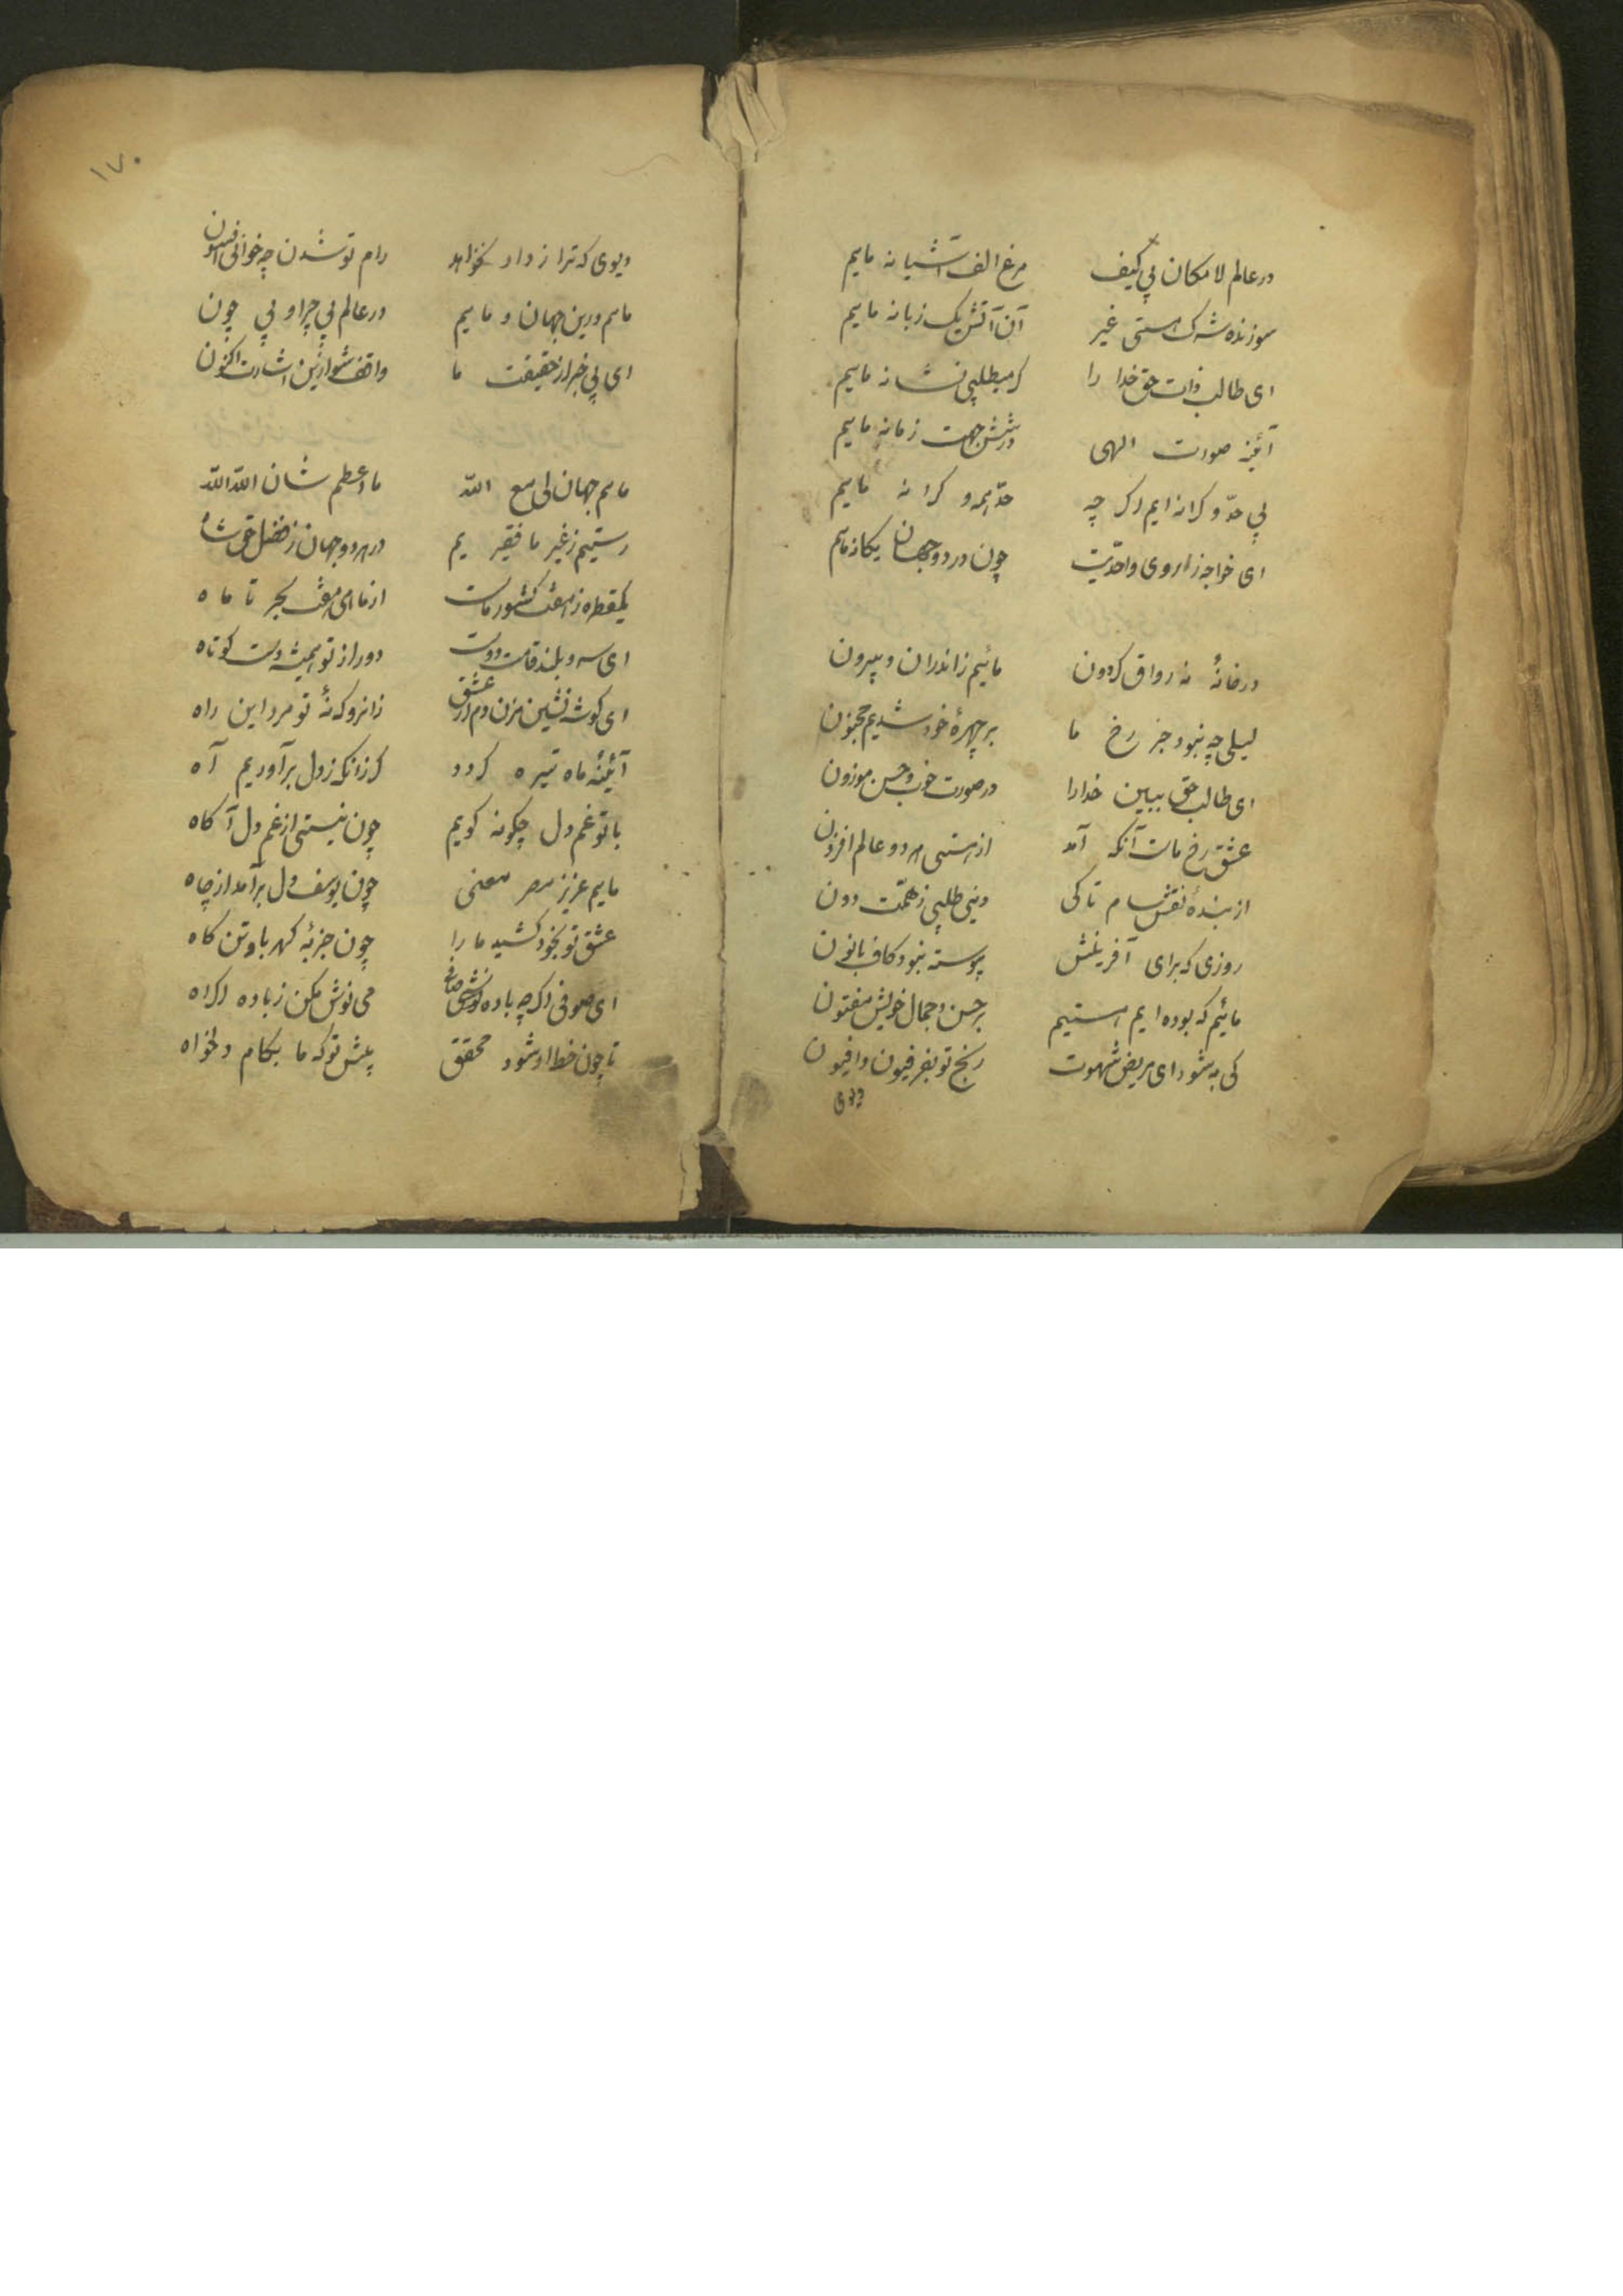 در عالم لا مکان بی کیف مرغ الف آشیانه ماییم
سوزنده شرک هستی غیر آن آتش یک زبانه ماییم
ای طالب ذات حق خدا را گر میطلبی نشانه ماییم
آئینه صورت الهی در شش جهت زمانه ماییم
بی حدّ و کرانه ایم اگر چه حدّ همه و کرانه ماییم
ای خواجه ز روی واحدیّت چون در دو جهان یکانه ماییم
در خانهٔ نه رواق کردون مائیم ز اندران و بیرون
لیلی چه نبود جز رخ ما بر چهرهٔ خود شدیم مجنون
ای طالب حق ببین خدا را در صورت خوب و حسن موزون
عشق رخ مات آنکه آمد از هستی هر دو عالم افزون
از بندهٔ نقش سام تا کی دینی طلبی ز همّت دون
روزی که برای آفرینش پیوسته نبود کاف با نون
مائیم که بوده ایم و هستیم بر حسن و جمال خویش مفتون
کی به شود ای مریض شهوت رنج تو بفرفیون و افیون
دیوی
١٧٠
دیوی که ترا ز دار نخواهد رام تو شدن چه خوانی افسون
ماییم درین جهان و ماییم در عالم بی چرا و بی چون
ای بی خبر از حقیقت ما واقف شو ازین اشارت اکنون
ماییم جهان لی مع اللّه ما اعظم شان اللّه اللّه
رستیم ز غیر ما فقیریم در هر دو جهان ز فضل حق شاه
یکقطره ز هفت کشور مات از ماهی هفت بحر تا ماه
ای سرو بلند قامت دوست دور از تو همیشه دست کوتاه
ای کوشه نشین مزن دم از عشق زانرو که نهٔ تو مرد این راه
آئینهٔ ماه تیره کردد کر زانکه ز دل برآوریم آه
با تو غم دل چکونه کویم چون نیستی از غم دل آکاه
ماییم عزیز مصر معنی چون یوسف دل برآمد از چاه
عشق تو بخود کشید ما را چون جزبهٔ کهربا و تن کاه
ای صوفی اکر چه باده نوشی صافی می نوش مکن ز باده اکراه
تا چون خط او شود محقق پیش تو که ما بکام دلخواه